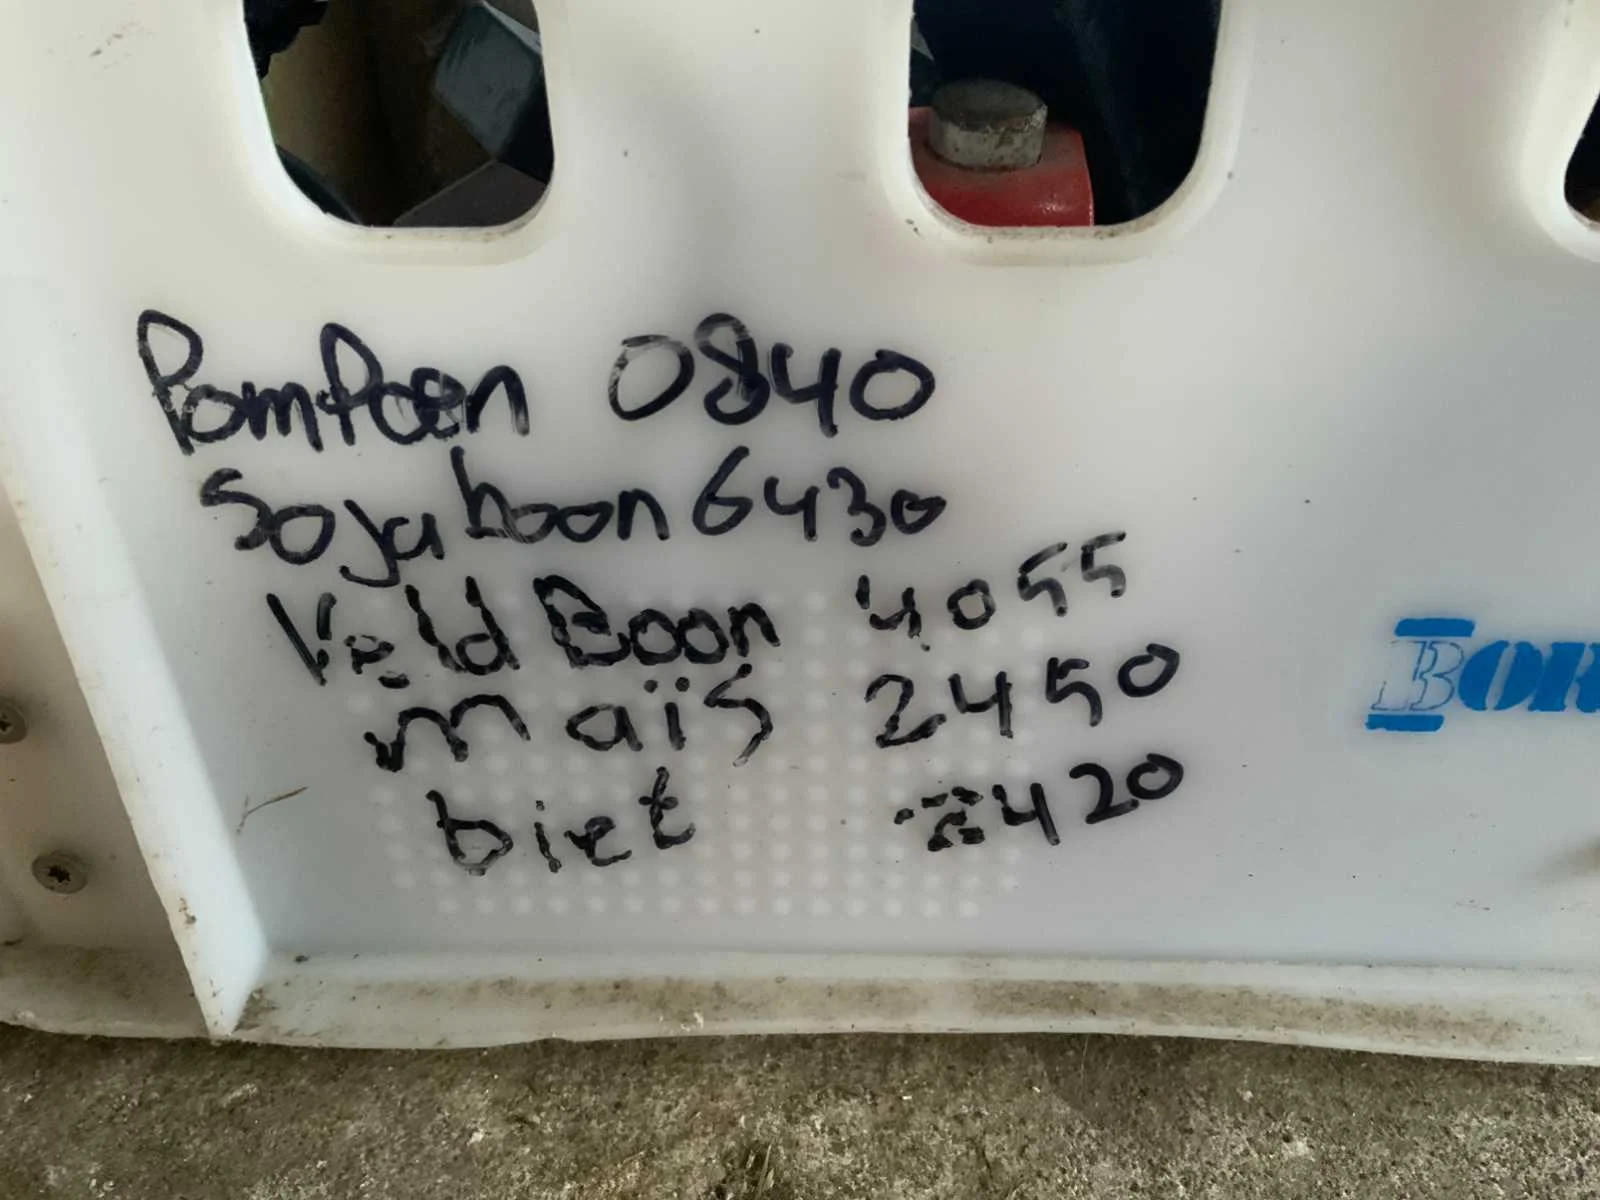 Pompoen 0840
Sojaboon 6430
Veld Boon 4055
maïs 2450
biet 2420
BOR